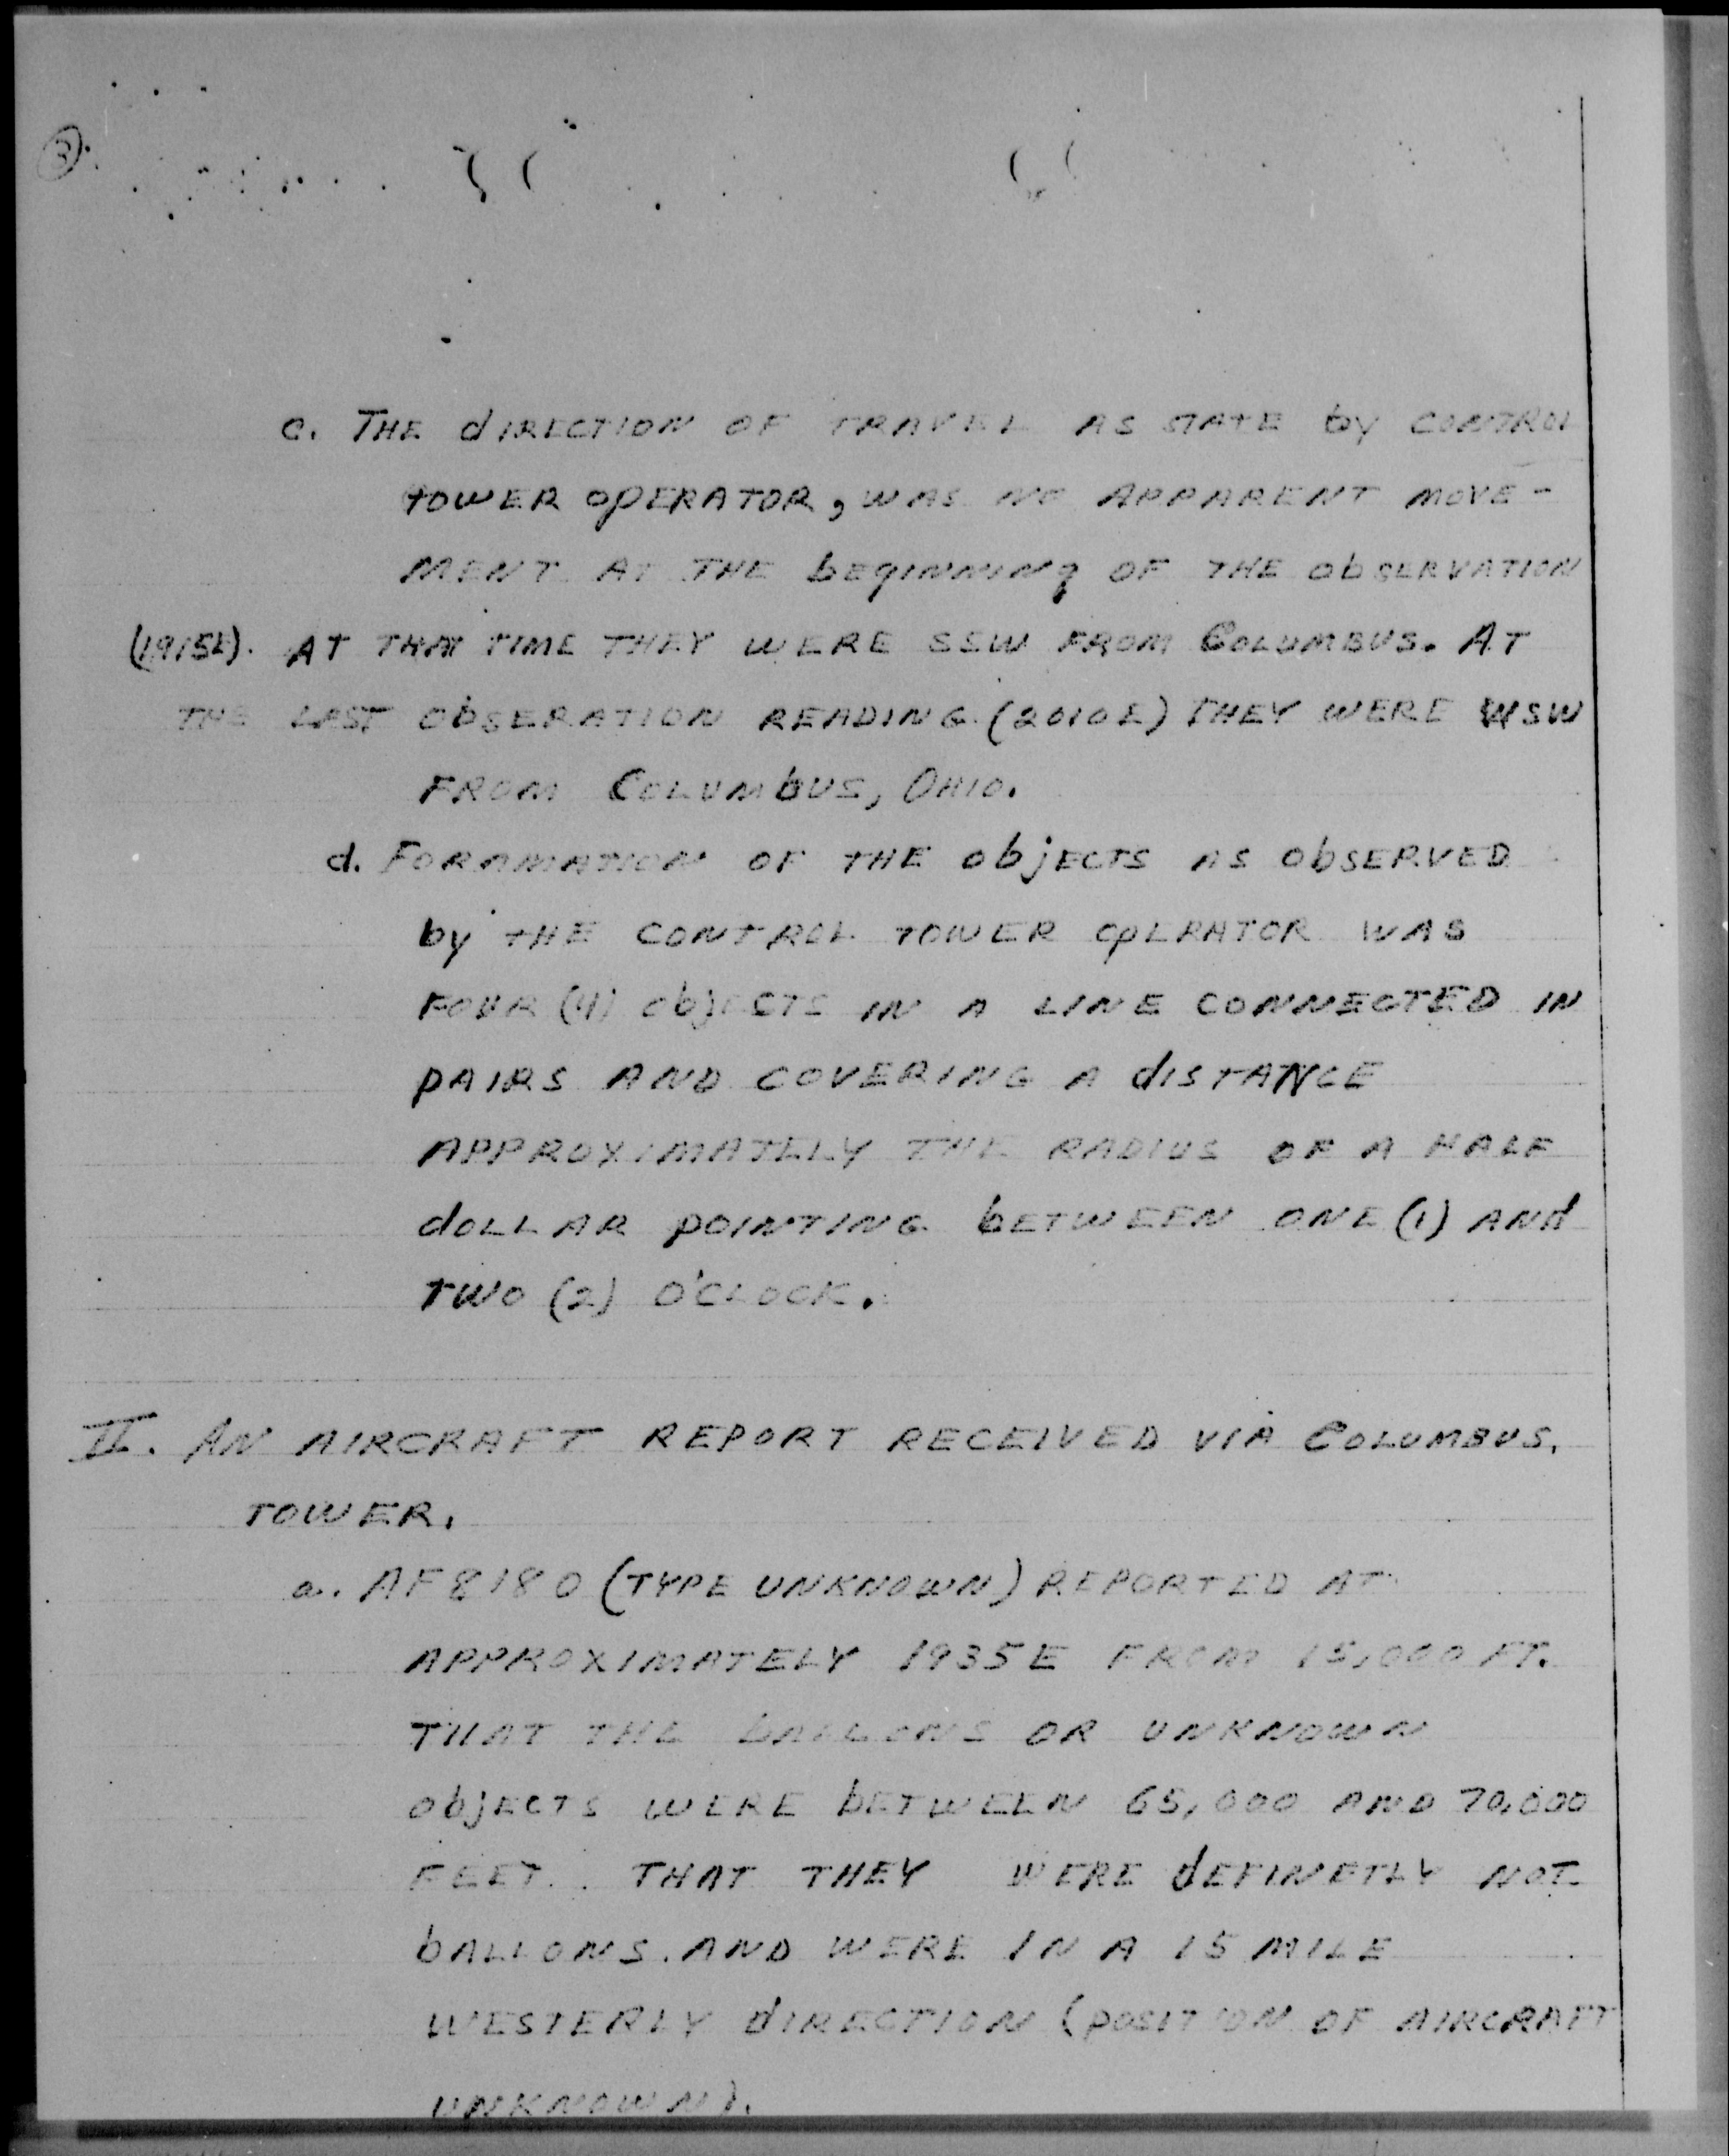 3.
c. THE dIRECTION OF TRAVEL AS STATE by CONTROL
TOWER OPERATOR, WAS NO APPARENT MOVE-
MENT AT THE bEgINNINg OF THE ObSERVATION
(1915E). AT THAT TIME THEY WERE SSW FROM COLUMBUS. AT
THE LAST ObSERATION READING (2010E) THEY WERE WSW
FROM COLUMbUS, OHIO.
d. FORAMATION OF THE ObjECTS AS ObSERVED
by THE CONTROL TOWER OpERATOR WAS
FOUR (4) ObjECTS IN A LINE CONNECTED IN
pAIRS AND COVERING A dISTANCE
APPROXIMATELY THE RADIUS OF A HALF
dOLLAR pOINTING bETWEEN ONE (1) ANd
TWO (2) O'CLOCK.
II. AN AIRCRAFT REPORT RECEIVED VIA COLUMBUS.
TOWER.
a. AF 8180 (TYPE UNKNOWN) REPORTED AT
APPROXIMATELY 1935E FROM 15,000 FT.
THAT THE bALLONS OR UNKNOWN
ObjECTS WERE bETWEEN 65,000 AND 70,000
FEET. THAT THEY WERE dEFINETLY NOT
bALLONS. AND WERE IN A 15 MILE
WESTERLY dIRECTION (pOSITION OF AIRCRAFT
UNKNOWN).